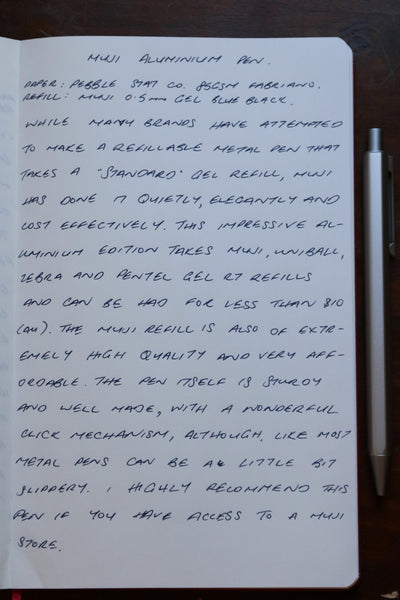 MUJI ALUMINIUM PEN.
PAPER: PEBBLE STAT CO. 85GSM FABRIANO.
REFILL: MUJI 0.5mm GEL BLUE BLACK.
WHILE MANY BRANDS HAVE ATTEMPTED
TO MAKE A REFILLABLE METAL PEN THAT
TAKES A "STANDARD" GEL REFILL, MUJI
HAS DONE IT QUIETLY, ELEGANTLY AND
COST EFFECTIVELY. THIS IMPRESSIVE AL-
UMINIUM EDITION TAKES MUJI, UNIBALL,
ZEBRA AND PENTEL GEL RT REFILLS
AND CAN BE HAD FOR LESS THAN $10
(AU). THE MUJI REFILL IS ALSO OF EXTR-
EMELY HIGH QUALITY AND VERY AFF-
ORDABLE. THE PEN ITSELF IS STURDY
AND WELL MADE, WITH A WONDERFUL
CLICK MECHANISM, ALTHOUGH, LIKE MOST
METAL PENS CAN BE A LITTLE BIT
SLIPPERY. I HIGHLY RECOMMEND THIS
PEN IF YOU HAVE ACCESS TO A MUJI
STORE.